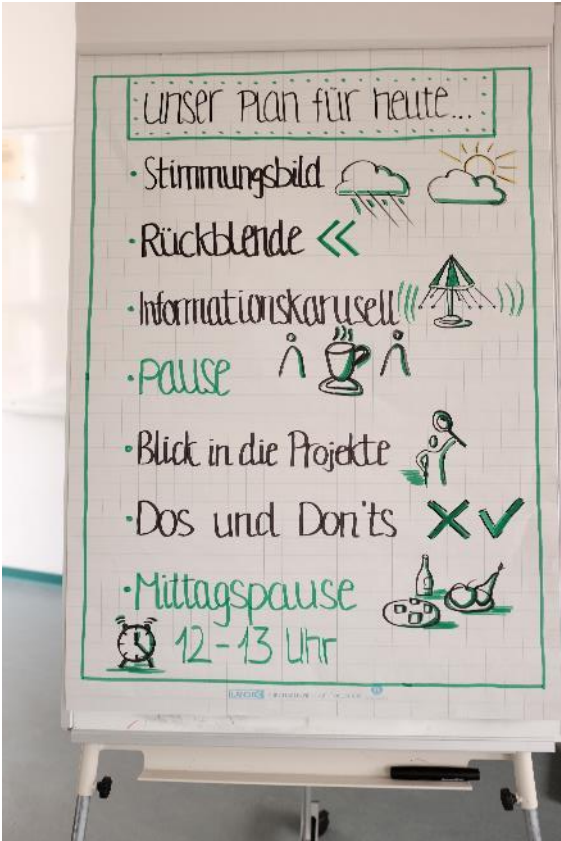 Unser Plan für heute...
· Stimmungsbild
· Rückblende <<
· Informationskarusell
· Pause
· Blick in die Projekte
· Dos und Don'ts
· Mittagspause
12-13 Uhr